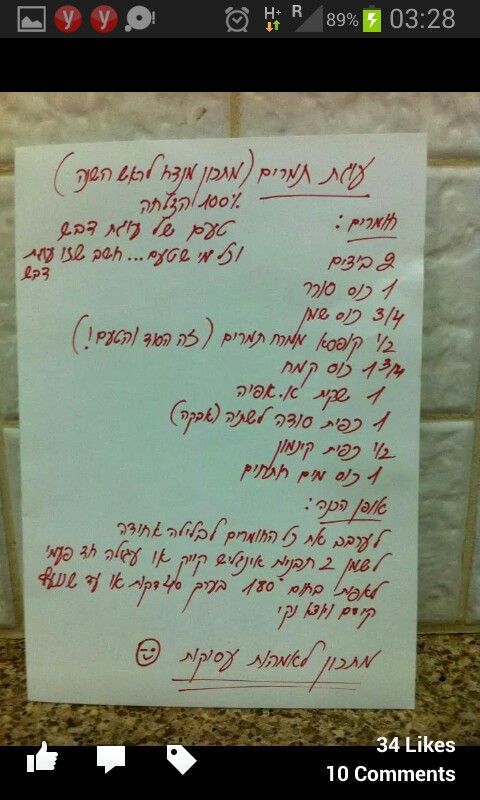 H+
R
89%
03:28
עוגת תמרים (מתכון מנצח לראש השנה)
100% הצלחה
חומרים:
טעם של עוגת דבש
וכל מי שטעם... חשב שזו עוגת דבש
2 ביצים
1 כוס סוכר
3/4 כוס שמן
1/2 קופסא ממרח תמרים (זה הסוד והטעם!)
1 3/4 כוס קמח
1 שקית א. אפיה
1 כפית סודה לשתיה (אבקה)
1/2 כפית קינמון
1 כוס מים רותחים
אופן הכנה:
לערבב את כל החומרים לבלילה אחידה
לשמן 2 תבניות אינגליש קייק או עגולה חד פעמי
לאפות בחום 180° בערך 40 דקות או עד שנועץ
קיסם ויוצא נקי
מתכון לאמהות עסוקות
34 Likes
10 Comments